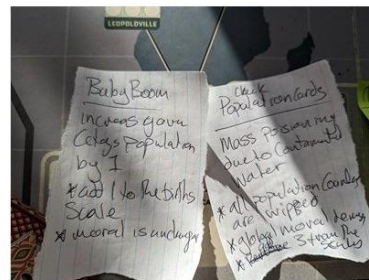 LEOPOLDVILLE
Baby Boom
increas given
Citys population
by 1
* add 1 to the births
Scale
* moral is unchange
Population Cards
Mass poisoning
due to Contaminated
water
* all population Counters
are wiped
* global moral
3 from the
scales